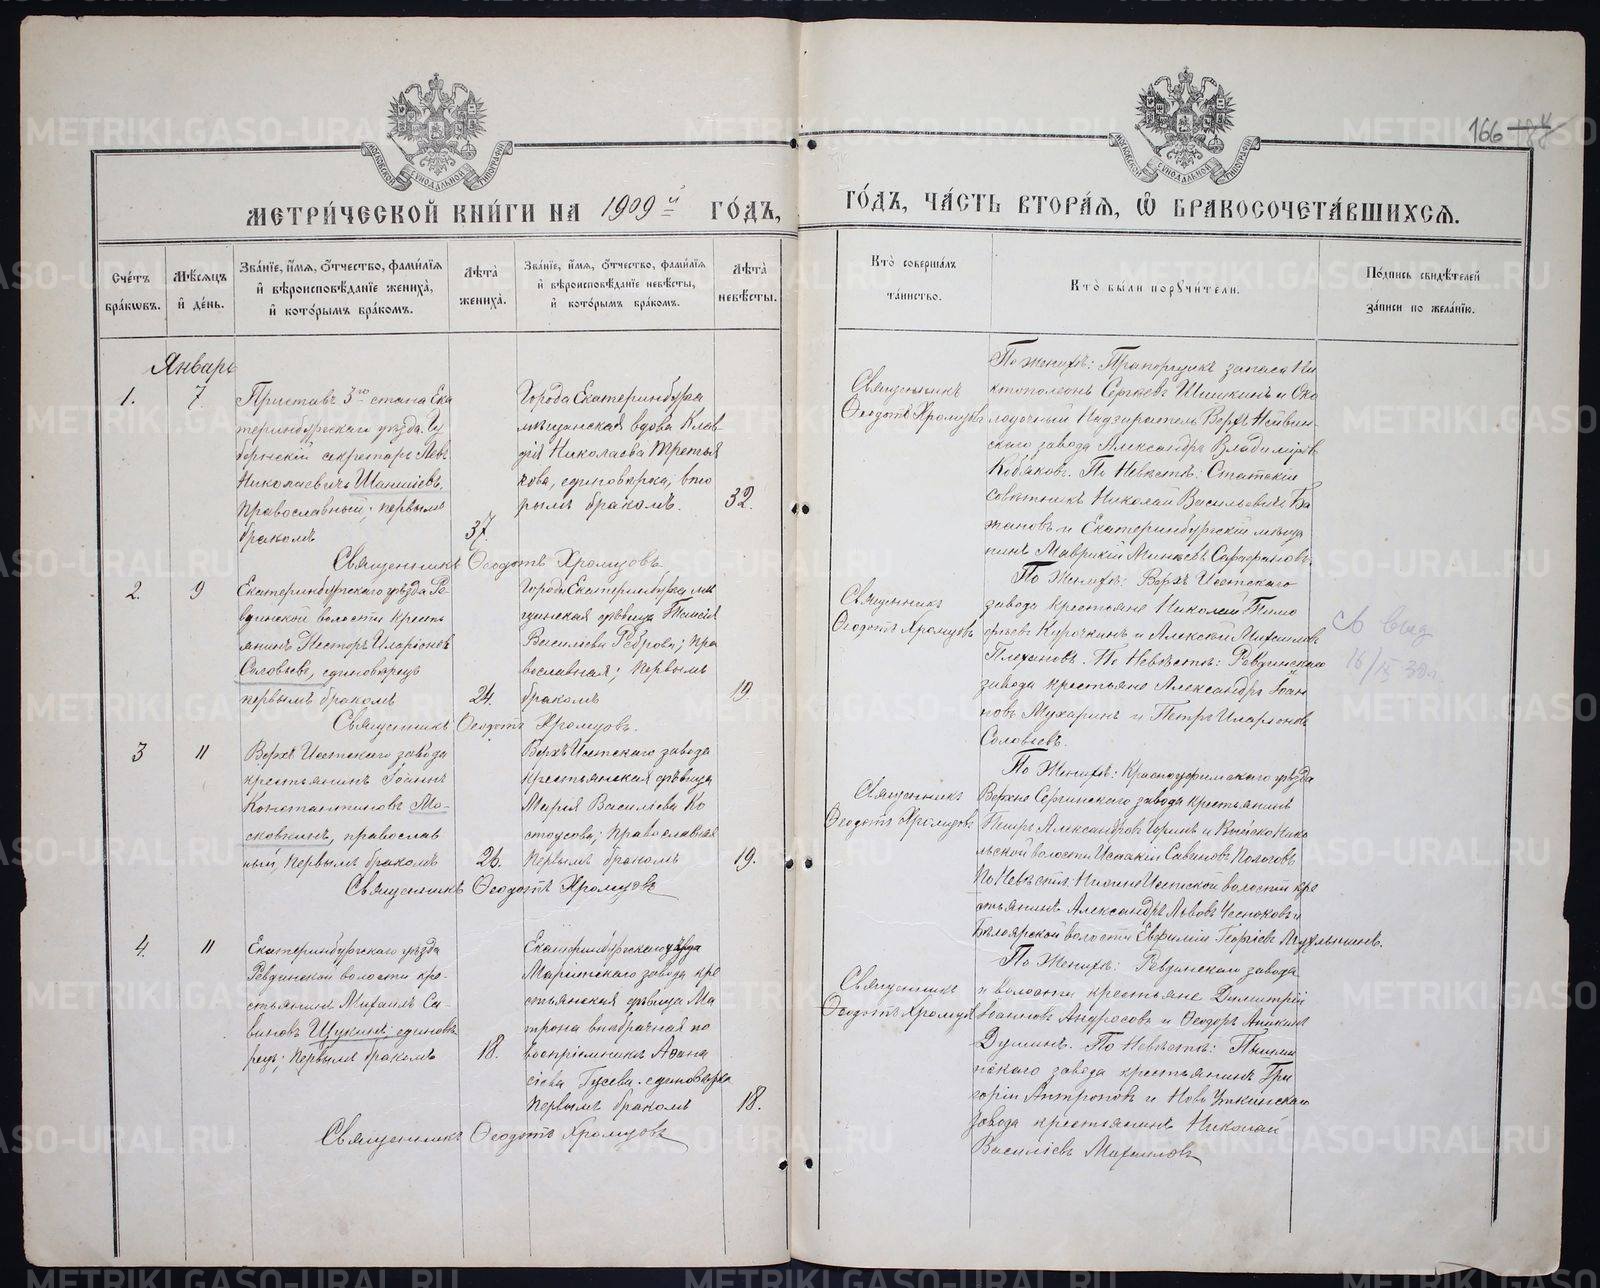 166
МЕТРИ́ЧЕСКОЙ КНИ́ГИ НА 1909й ГО́ДЪ,
ГО́ДЪ, ЧА́СТЬ ВТОРА́Я, Ѡ БРАКОСОЧЕТА́ВШИХСЯ.
Сче́тъ бра́кѡвъ.
Мѣ́сяцъ и҆ де́нь.
Зва́нїе, и҆́мя, ѻ҆́тчество, фами́лїя и҆ вѣроисповѣ́данїе жениха̀, и҆ кото́рымъ бра́комъ.
Лѣ́та жениха̀.
Зва́нїе, и҆́мя, ѻ҆́тчество, фами́лїя и҆ вѣроисповѣ́данїе невѣ́сты, и҆ кото́рымъ бра́комъ.
Лѣ́та невѣ́сты.
Кто̀ соверша́лъ та́инство.
Кто̀ бы́ли порꙋчи́тели.
По́дпись свидѣ́телей за́писи по жела́нїю.
Январь
1.
7.
Приставъ 3го стана Ека
теринбургскаго уѣзда, Гу
бернскій секретарь Левъ
Николаевичъ Шаншіевъ,
православный; первымъ
бракомъ
37.
Города Екатеринбурга
мѣщанская вдова Клав
дія Николаева Третья
кова, единовѣрка, вто
рымъ бракомъ.
32.
Священникъ Ѳеодотъ Хромцовъ
Священникъ
Ѳеодотъ Хромцовъ
По женихѣ: Прапорщикъ запаса Ни
ктополеонъ Сергѣевъ Шишкинъ и Око
лодочный Надзиратель Верхъ Нейвин-
скаго завода Александръ Владиміровъ
Кобяковъ. По Невѣстѣ: Статскій
совѣтникъ Николай Васильевичъ Ба
жановъ и Екатеринбургскій мѣща
нинъ Маврикій Минѣевъ Сафроновъ.
2.
9
Екатеринбургскаго уѣзда Ре-
вдинской волости кресть
янинъ Несторъ Иларіоновъ
Соловьевъ, единовѣрецъ
первымъ бракомъ
24.
Города Екатеринбурга мѣ
щанская дѣвица Таисія
Васильева Реброва; пра
вославная; первымъ
бракомъ
19.
Священникъ Ѳеодотъ Хромцовъ.
Священникъ
Ѳеодотъ Хромцовъ
По Женихѣ: Верхъ Исетскаго
завода крестьяне Николай Тимо
фѣевъ Курочкинъ и Алексѣй Михаиловъ
Плехановъ. По Невѣстѣ: Ревдинскаго
завода крестьяне Александръ Іоан
новъ Мухаринъ и Петръ Иларіоновъ
Соловьевъ.
3
11
Верхъ Исетскаго завода
крестьянинъ Іоаннъ
Константиновъ Мо-
сковкинъ, православ
ный, первымъ бракомъ
26.
Верхъ Исетскаго завода
крестьянская дѣвица
Марія Васильева Ко
стоусова; православная
первымъ бракомъ
19.
Священникъ Ѳеодотъ Хромцовъ
Священникъ
Ѳеодотъ Хромцовъ
По Женихѣ: Красноуфимскаго уѣзда
Верхне Сергинскаго завода крестьянинъ
Петръ Александровъ
льской волости Исаакій Савиновъ
По Невѣстѣ: Нижне Исетской волости кре
стьянинъ Александръ Львовъ Чесноковъ и
Бѣлоярской волости Евфимій Георгіевъ
4.
11
Екатеринбургскаго уѣзда
Ревдинской волости кре-
стьянинъ Михаилъ Са-
виновъ Щукинъ, единовѣ
рецъ; первымъ бракомъ
18.
Екатеринбургскаго уѣзда
Маріинскаго завода кре
стьянская дѣвица Ма
трона внѣбрачная по
воспріемнику Аѳана
сіева Гусева. единовѣрка
первымъ бракомъ
18.
Священникъ Ѳеодотъ Хромцовъ
Священникъ
Ѳеодотъ Хромцовъ
По Женихѣ: Ревдинскаго завода
и волости крестьяне Димитрій
Іоанновъ Андросовъ и Ѳеодоръ Аникіевъ
Душинъ. По Невѣстѣ:
скаго завода крестьянинъ Гри
горій Антроповъ и Ново Уткинскаго
завода крестьянинъ Николай
Василіевъ Махаиловъ
METRIKI.GASO-URAL.RU